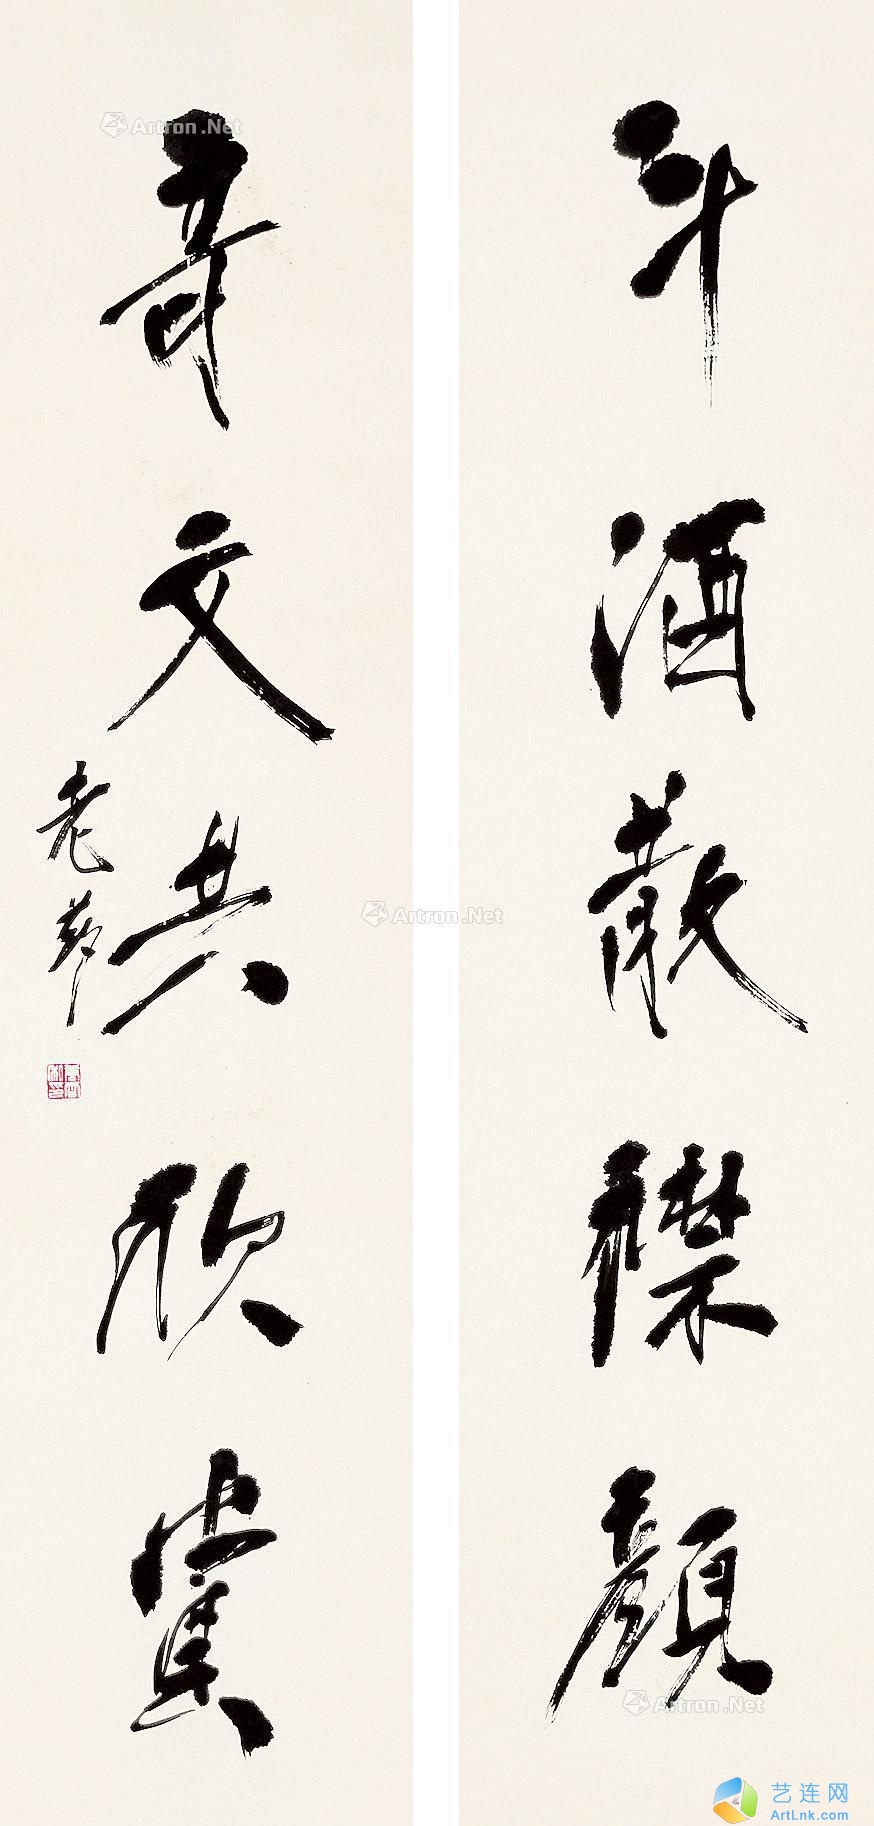 斗酒散襟顏
奇文共欣賞
老
Artron.Net
Artron.Net
Artron.Net
艺连网
ArtLnk.com